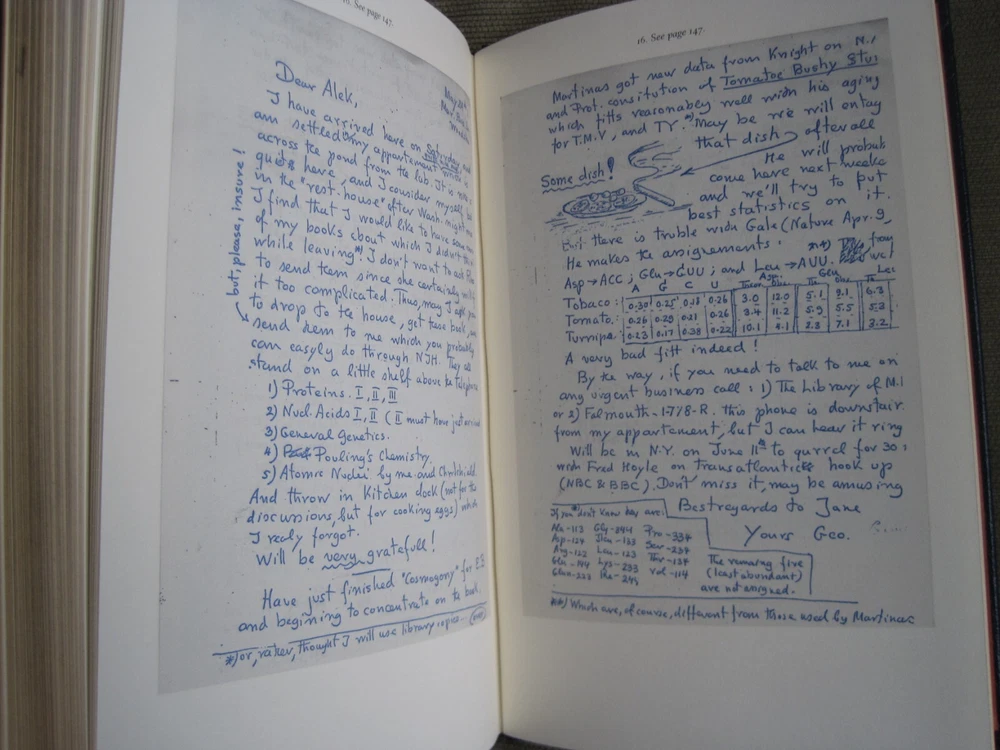 16. See page 147.
May
Dear Alek,
I have arrived here on Saturday, and
am settled in my appartement which is
across the pond from the lab. It is very
quiet here, and I consider myself
in the "rest-house" after Wash.
I find that I would like to have some
of my books about which I didn't
while leaving*) I don't want to ask
to send them since she certainly
it too complicated. Thus, may I ask you
to drop to the house, get these books, and
send them to me which you probably
can easyly do through NIH. They all
stand on a little shelf above the telephone
but, please, insure!
1) Proteins. I, II, III
2) Nucl. Acids I, II (II must have just arrived
3) General Genetics.
4) Pouling's Chemistry
5) Atomic Nuclei by me and Chritchfield
And throw in Kitchen clock (not for the
discussions, but for cooking eggs) which
I realy forgot.
Will be very gratefull!
Have just finished "Cosmogony" for EB
and begining to concentrate on the book.
*) or, rather, thought I will use library copies...
16. See page 147.
Martinas got new data from Knight on N.A
and Prot. consitution of Tomatoe Bushy Stu
which fitts reasonably well with his aging
for T.M.V, and TY. May be we will entay
that dish, after all
Some dish!
He will probub
come here next weeke
and we'll try to put
best statistics on it.
But there is truble with Gale (Nature Apr. 9
He makes the assignements: from
Asp→ACC; Glu→GUU; and Leu→AUU. we
A G C U Asp. Glu Leu
Tobaco: 0.30 0.25 0.18 0.26 3.0 12.0 5.1 9.1 6.3
Tomato: 0.26 0.29 0.21 0.26 3.4 11.2 5.9 5.5 5.3
Turnipe: 0.23 0.17 0.38 0.22 10.1 4.1 2.8 7.1 3.2
A very bad fitt indeed!
By the way, if you need to talk to me on
any urgent business call: 1) The Library of M.I
or 2) Falmouth-1-778-R. This phone is downstair
from my appartement, but I can hear it ring
Will be in N.Y. on June 11th to qurrel for 30
with Fred Hoyle on transatlantic hook up
(NBC & BBC). Don't miss it, may be amusing
Bestregards to Jane
Yours Geo.
If you don't know they are:
Ala-113 Gly-344 Pro-334
Asp-124 Ileu-133 Ser-234
Arg-132 Leu-123 Thr-134
Glu-144 Lys-233 Val-114
Glun-223 Phe-244
The remaing five
(least abundant)
are not asigned.
**) Which are, of course, different from those used by Martinas